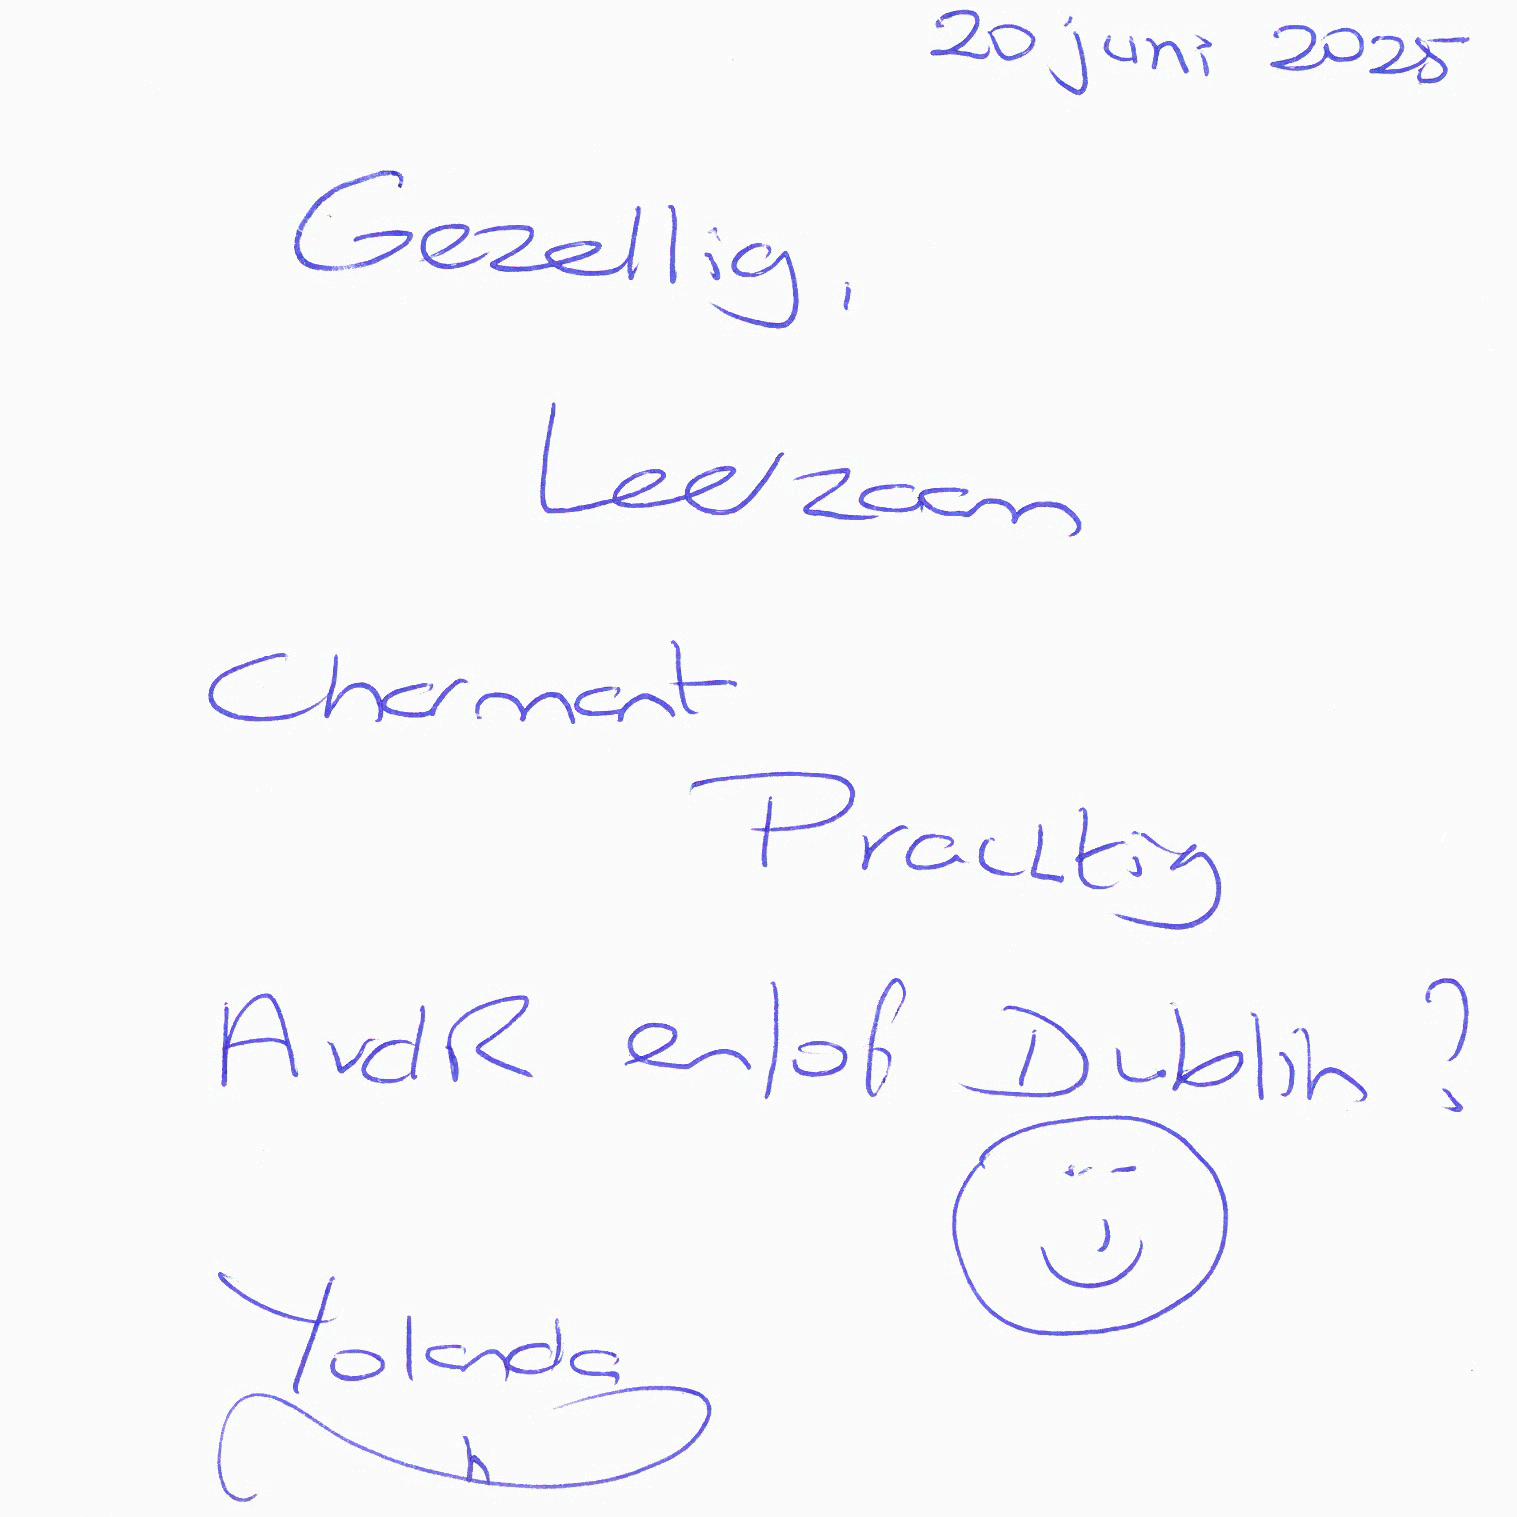 20 juni 2025
Gezellig,
Leerzaam
Charmant
Prachtig
AvdR en/of Dublin?
Yolanda
h